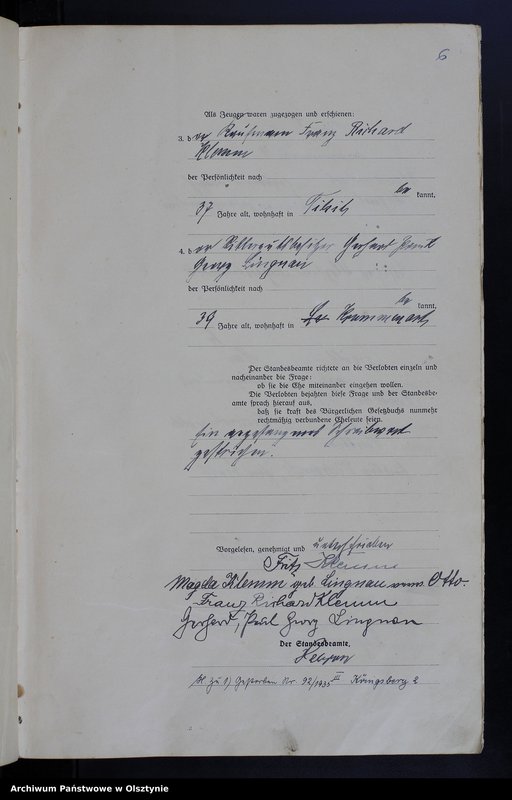 6
Als Zeugen waren zugezogen und erschienen:
3. der Kaufmann Franz Richard
Klemm
der Persönlichkeit nach
be kannt,
37 Jahre alt, wohnhaft in Tilsit
4. der Rittergutsbesitzer Gerhard Paul
Georg Lingnau
der Persönlichkeit nach
be kannt,
39 Jahre alt, wohnhaft in
Der Standesbeamte richtete an die Verlobten einzeln und
nacheinander die Frage:
ob sie die Ehe miteinander eingehen wollen.
Die Verlobten bejahten diese Frage und der Standesbe-
amte sprach hierauf aus,
daß sie kraft des Bürgerlichen Gesetzbuchs nunmehr
rechtmäßig verbundene Eheleute seien.
Ein
gestrichen.
Vorgelesen, genehmigt und unterschrieben
Fritz Klemm
Magda Klemm geb. Lingnau verw. Otto.
Franz Richard Klemm
Gerhard, Paul Georg Lingnau
Der Standesbeamte,
H. zu 1) Gestorben Nr. 92/1935 III Königsberg 2
Archiwum Państwowe w Olsztynie